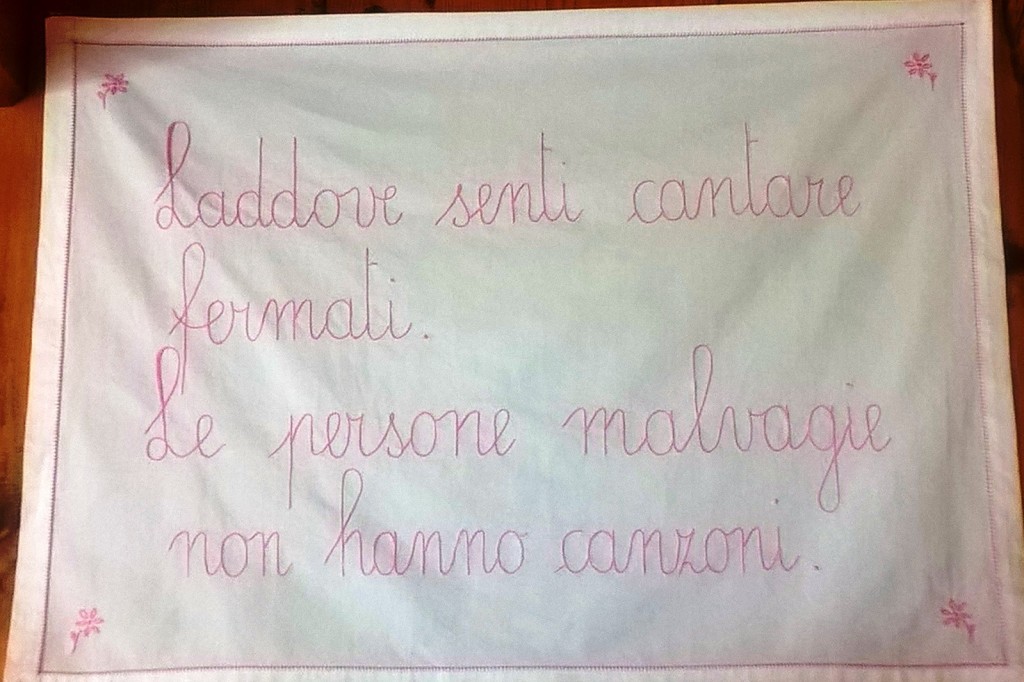 Laddove senti cantare
fermati.
Le persone malvagie
non hanno canzoni.